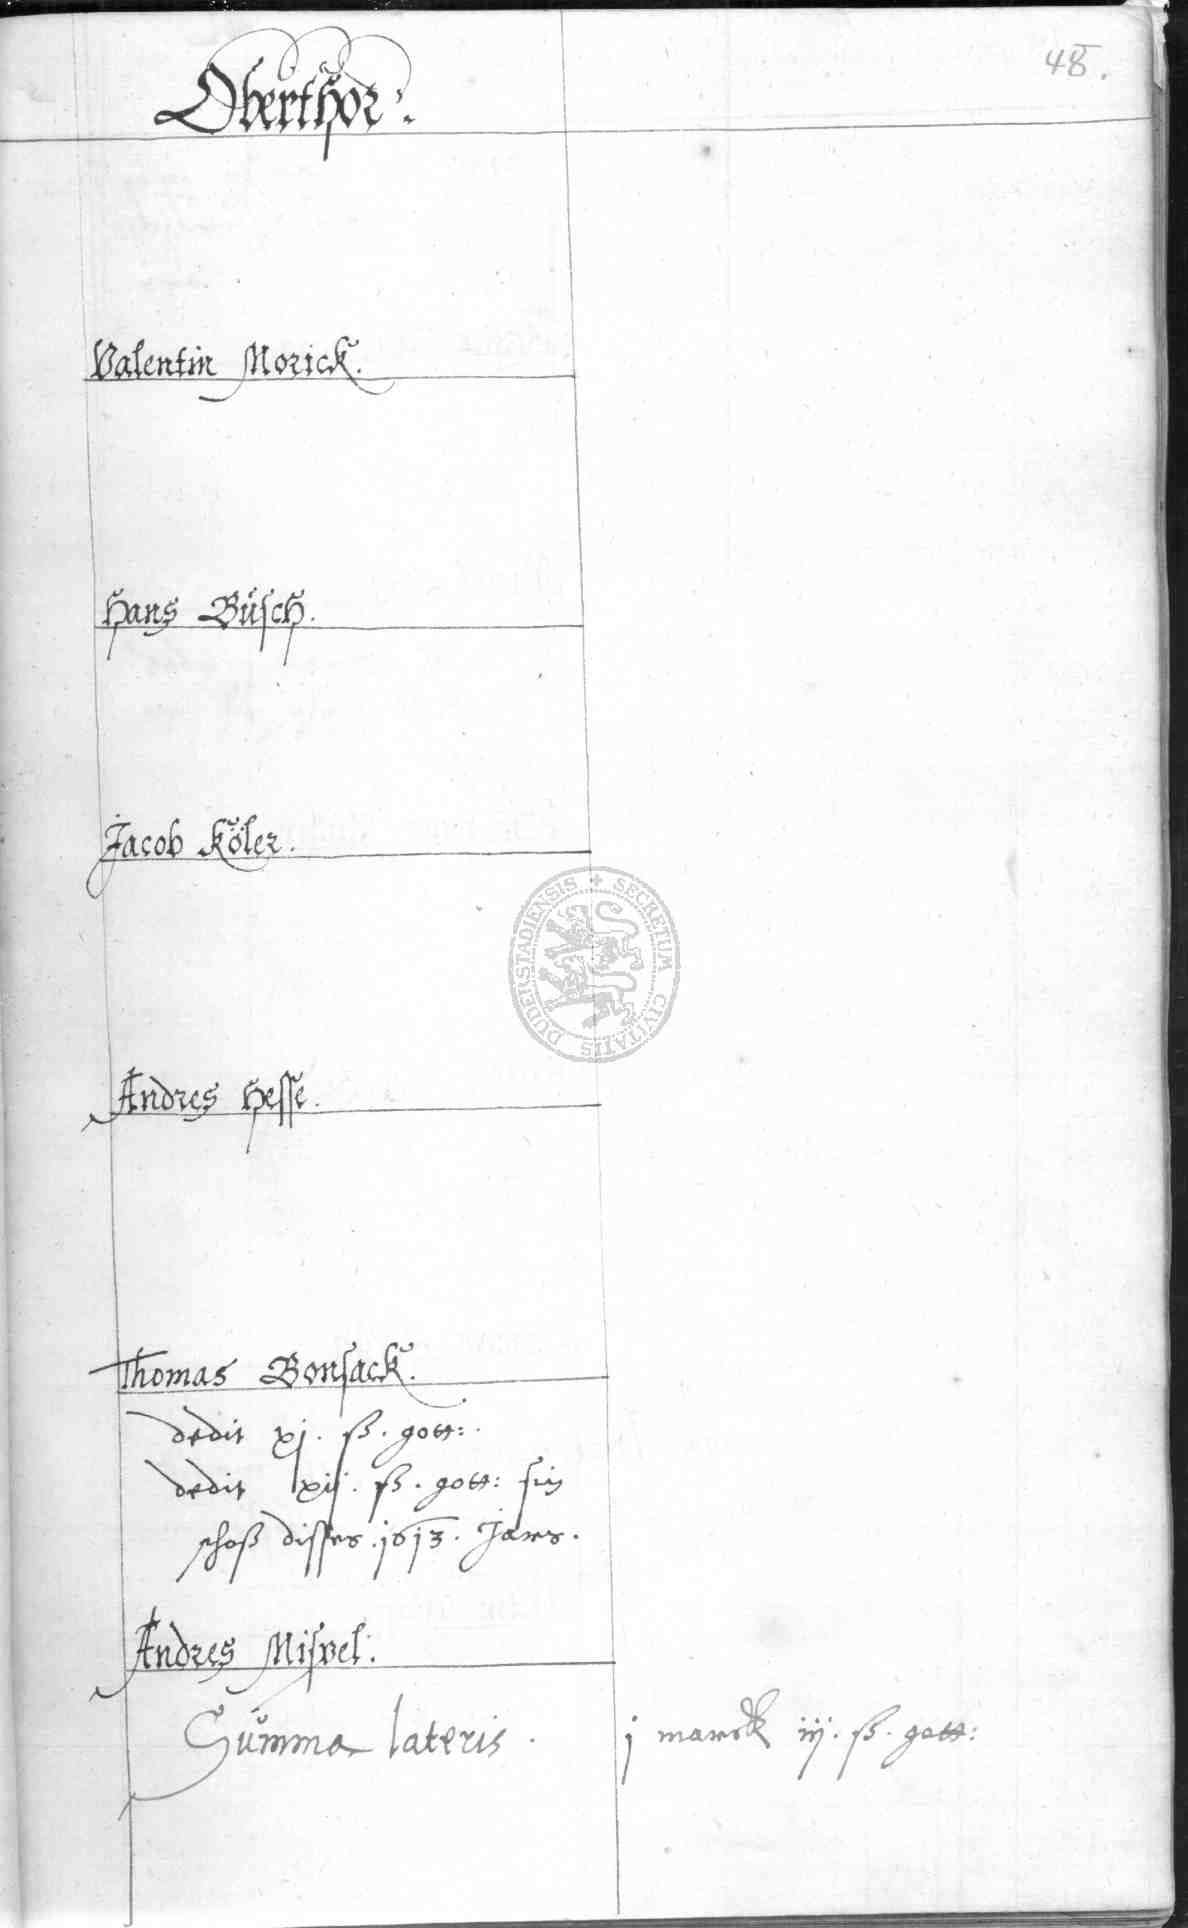 48.
Oberthor.
Valentin Morick.
Hans Büsch.
Jacob Köler.
SECRETUM CIVITATIS DUDERSTADIENSIS
Andres Hesse.
Thomas Bonsack.
dedit xj. ß. gott:
dedit xij. ß. gott: sin
schoß disses 1613. Jars.
Andres Misvel.
Summa lateris. j marck iij. ß. gott: